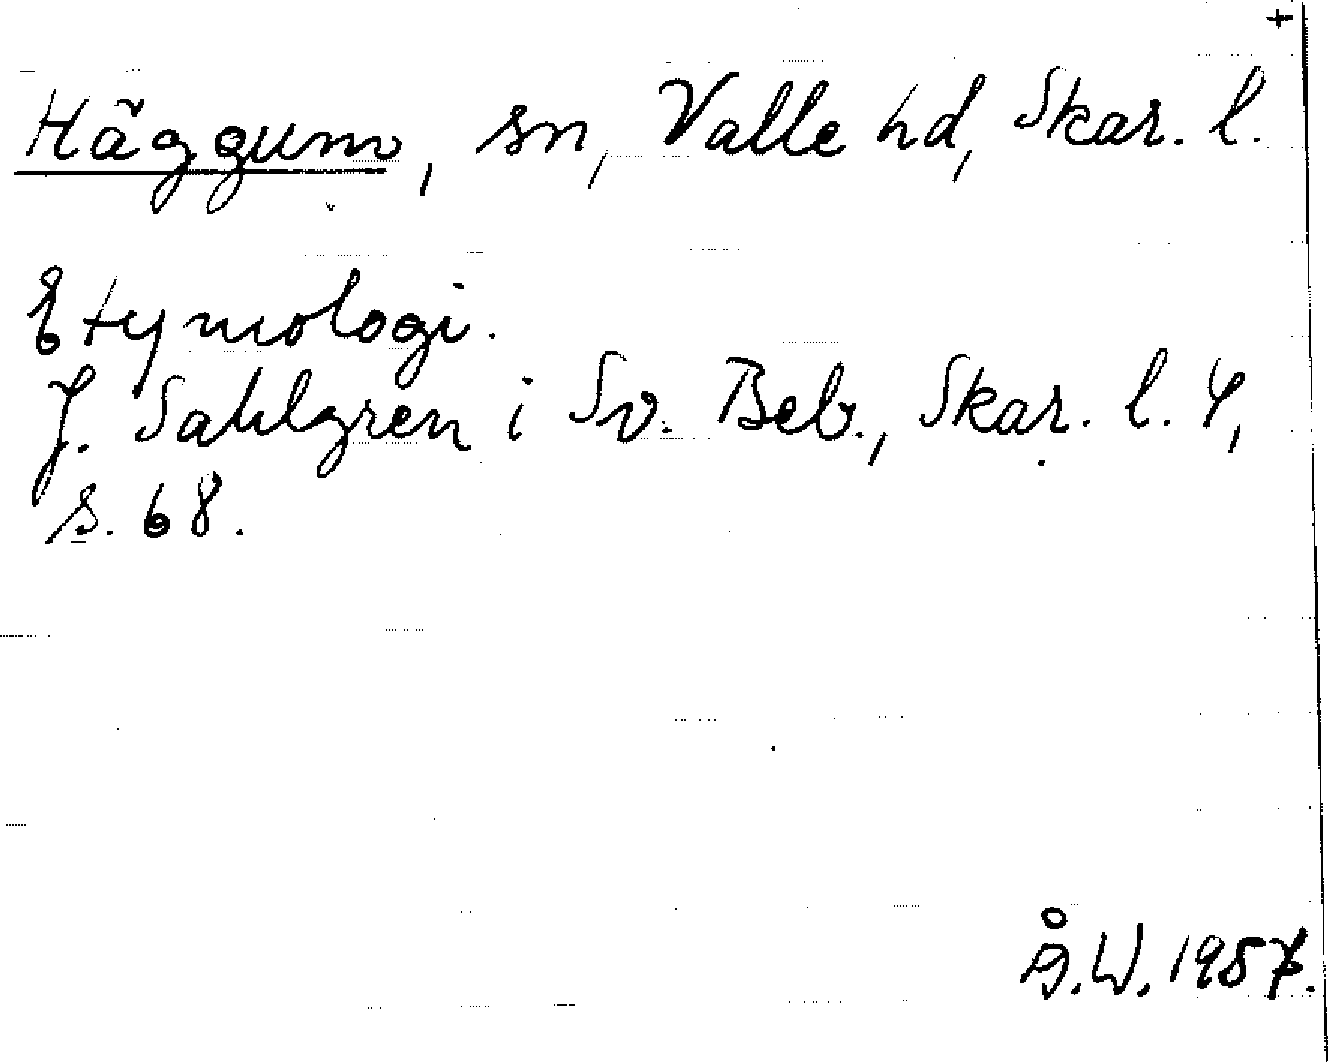 +
Häggum, sn, Valle hd, Skar. l.
Etymologi.
J. Sahlgren i Sv. Beb., Skar. l. 4,
s. 68.
Å.W. 1957.